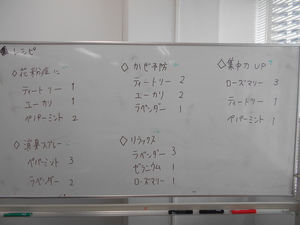 レシピ
◇花粉症に
ティートリー 1
ユーカリ 1
ペパーミント 2
◇かぜ予防
ティートリー 2
ユーカリ 2
ラベンダー 1
◇集中力UP
ローズマリー 3
ティートリー 1
ペパーミント 1
◇消臭スプレー
ペパーミント 3
ラベンダー 2
◇リラックス
ラベンダー 3
ゼラニウム 1
ローズマリー 1